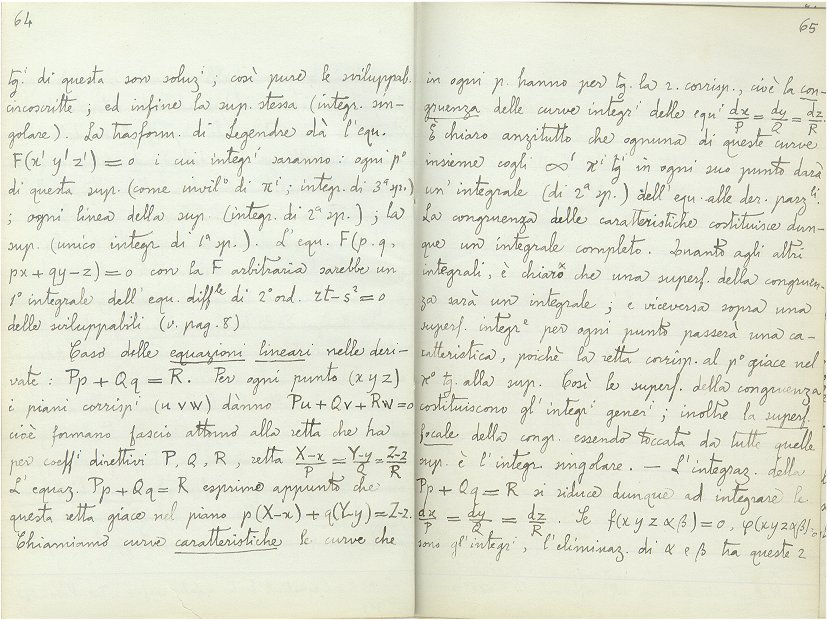 64
tgⁱ di questa son soluzⁱ; così pure le sviluppab.
circoscritte; ed infine la sup. stessa (integr. sin-
golare). La trasform. di Legendre dà l'equ.
F(x' y' z') = 0 i cui integrⁱ saranno: ogni pº
di questa sup. (come invilº di πⁱ; integr. di 3ª sp.)
; ogni linea della sup. (integr. di 2ª sp.); la
sup. (unico integr. di 1ª sp.). L'equ. F(p, q,
px + qy - z) = 0 con la F arbitraria sarebbe un
1º integrale dell'equ. diffˡᵉ di 2º ord. rt - s² = 0
delle sviluppabili (v. pag. 8)
Caso delle equazioni lineari nelle deri-
vate: Pp + Qq = R. Per ogni punto (x y z)
i piani corrispⁱ (u v w) dànno Pu + Qv + Rw = 0
cioè formano fascio attorno alla retta che ha
per coeffⁱ direttivi P, Q, R, retta (X-x)/P = (Y-y)/Q = (Z-z)/R
L'equaz. Pp + Qq = R esprime appunto che
questa retta giace nel piano p(X-x) + q(Y-y) = Z-z.
Chiamiamo curve caratteristiche le curve che
65
in ogni p. hanno per tg. la r. corrisp., cioè la con-
gruenza delle curve integrⁱ delle equⁱ dx/P = dy/Q = dz/R.
È chiaro anzitutto che ognuna di queste curve
insieme cogli ∞¹ πⁱ tgⁱ in ogni suo punto darà
un'integrale (di 2ª sp.) dell'equ. alle der. parzˡⁱ.
La congruenza delle caratteristiche costituisce dun-
que un integrale completo. Quanto agli altri
integrali, è chiaro che una superf. della congruen-
za sarà un integrale; e viceversa sopra una
superf. integrᵉ per ogni punto passerà una ca-
ratteristica, poichè la retta corrisp. al pº giace nel
πº tg. alla sup. Così le superf. della congruenza
costituiscono gl'integrⁱ generⁱ; inoltre la superf.
focale della congr. essendo toccata da tutte quelle
sup. è l'integr. singolare. — L'integraz. della
Pp + Qq = R si riduce dunque ad integrare le
dx/P = dy/Q = dz/R. Se f(x y z α β) = 0, φ(x y z α β) = 0
sono gl'integrⁱ, l'eliminaz. di α e β tra queste 2